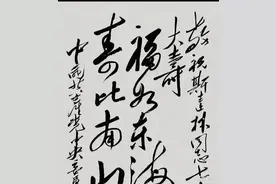 敬祝斯大林同志七十
大寿
福如东海
寿比南山
中国共产党中央委员